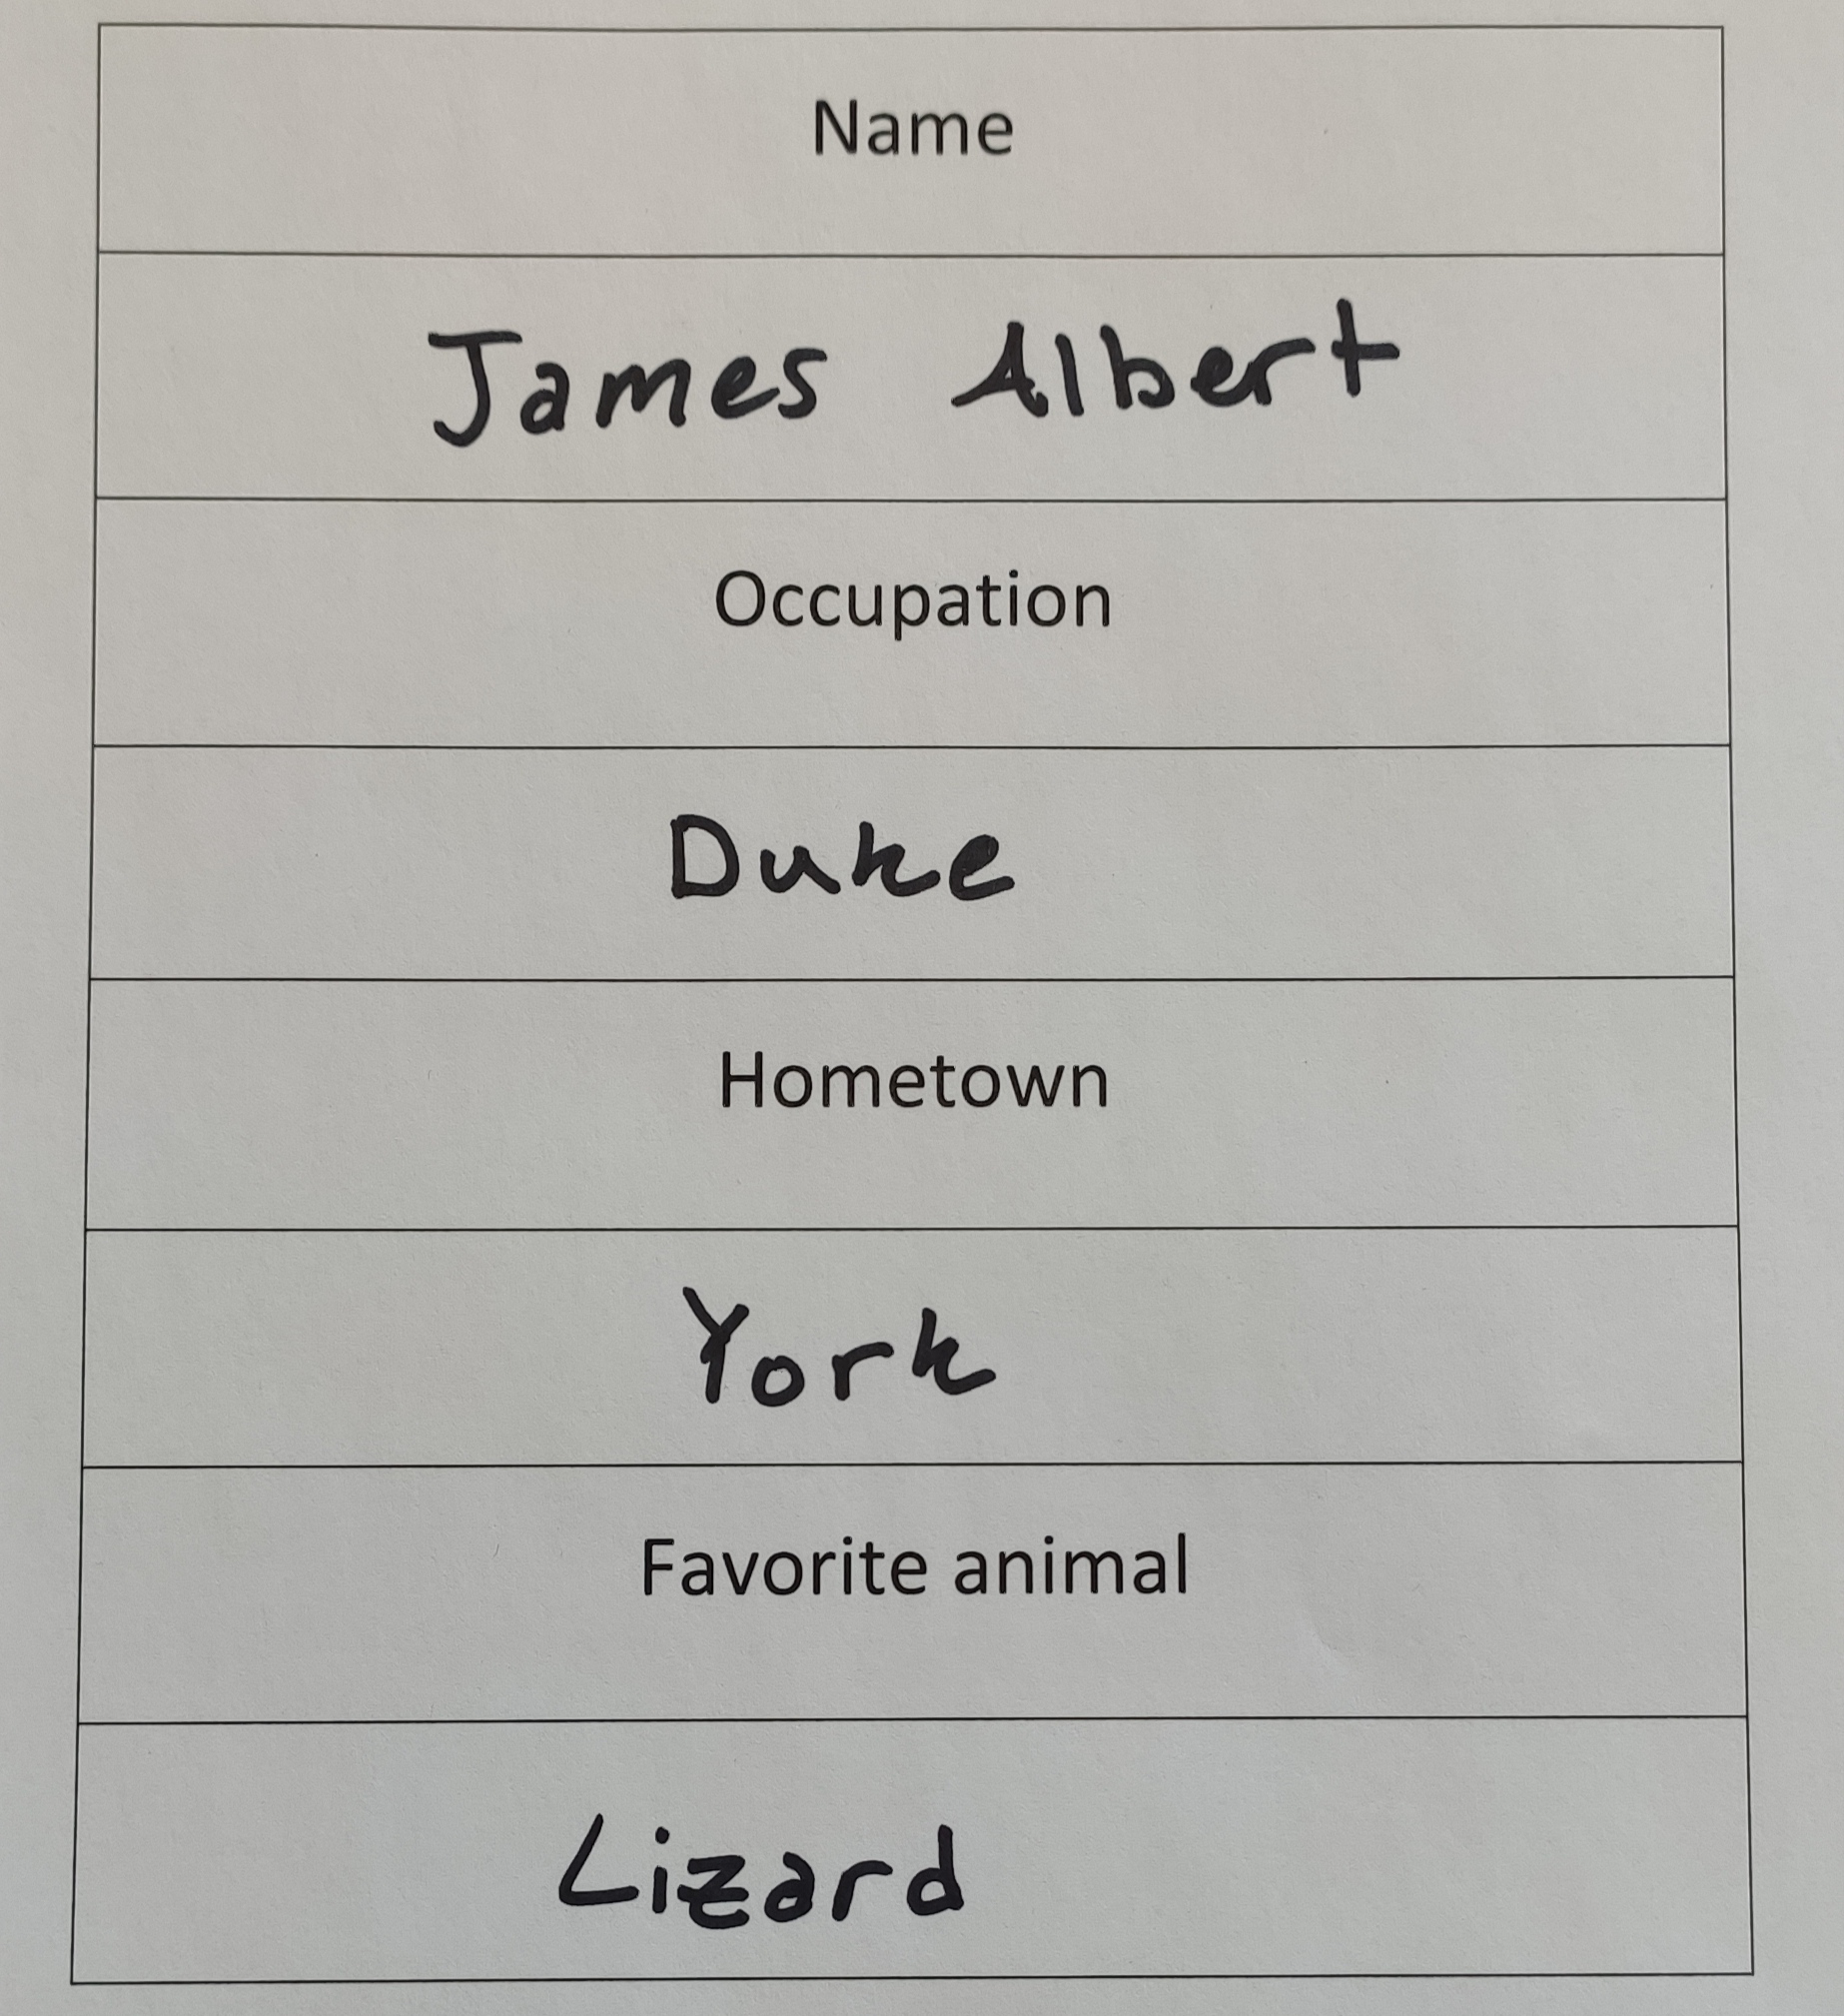 Name
James Albert
Occupation
Duke
Hometown
York
Favorite animal
Lizard